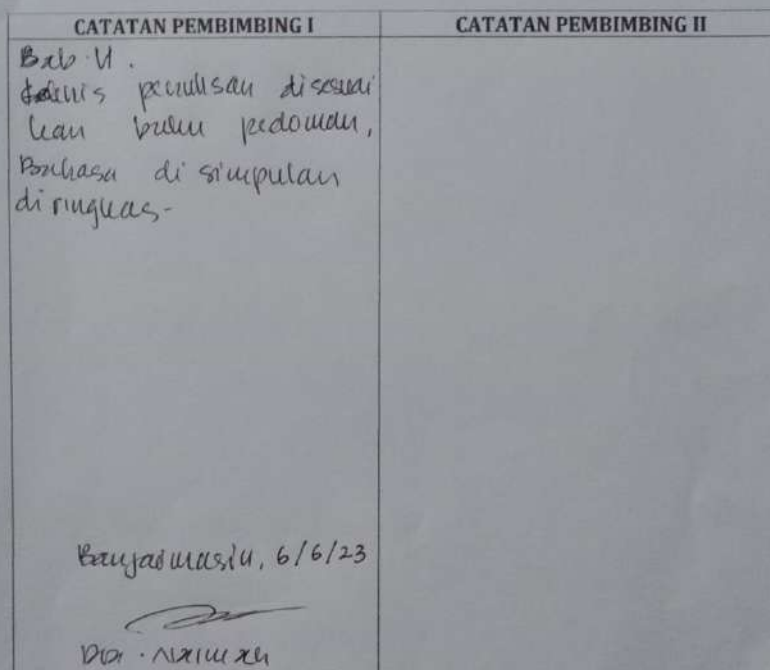 CATATAN PEMBIMBING I
CATATAN PEMBIMBING II
Bab
penulisan disesuai
kan buku pedoman,
Bahasa di simpulan
di ringkas-
Banjarmasin, 6/6/23